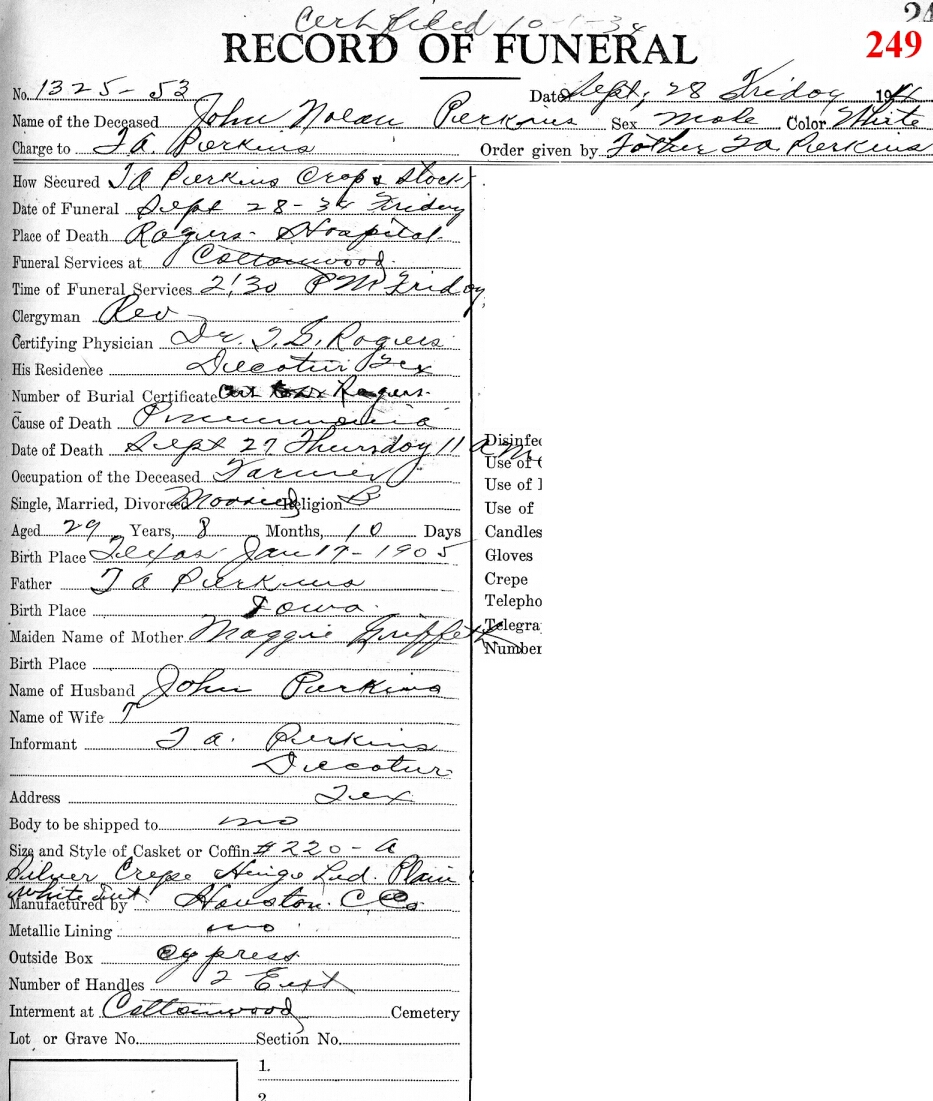 Cert filed 10-1-34
24
RECORD OF FUNERAL
249
No. 1325-53 Date Sept, 28 Friday 19
Name of the Deceased John Nolan Perkins Sex Male Color White
Charge to T A Perkins Order given by Father T a Perkins
How Secured T A Perkins Crop & Stock
Date of Funeral Sept 28-34 Friday
Place of Death Rogers Hospital
Funeral Services at Cottonwood
Time of Funeral Services 2:30 PM Friday
Clergyman Rev
Certifying Physician Dr. T. G. Rogers
His Residence Decatur Tex
Number of Burial Certificate Rogers.
Cause of Death Pneumonia
Date of Death Sept 27 Thursday 11 a m
Disinfec
Use of (
Occupation of the Deceased Farmer
Use of l
Single, Married, Divorced Married Religion B
Use of
Aged 29 Years, 8 Months, 10 Days
Candles
Birth Place Texas Jan 17-1905
Gloves
Father T A Perkins
Crepe
Birth Place Iowa
Telepho
Maiden Name of Mother Maggie Griffeth
Telegra
Number
Birth Place
Name of Husband John Perkins
Name of Wife
Informant T a. Perkins
Decatur
Address Tex
Body to be shipped to no
Size and Style of Casket or Coffin # 220-A
Silver Crepe Hinge Lid. Plain
White Int
Manufactured by Houston. C Co
Metallic Lining no
Outside Box cypress
Number of Handles 2 Ext
Interment at Cottonwood Cemetery
Lot or Grave No. Section No.
1.
2